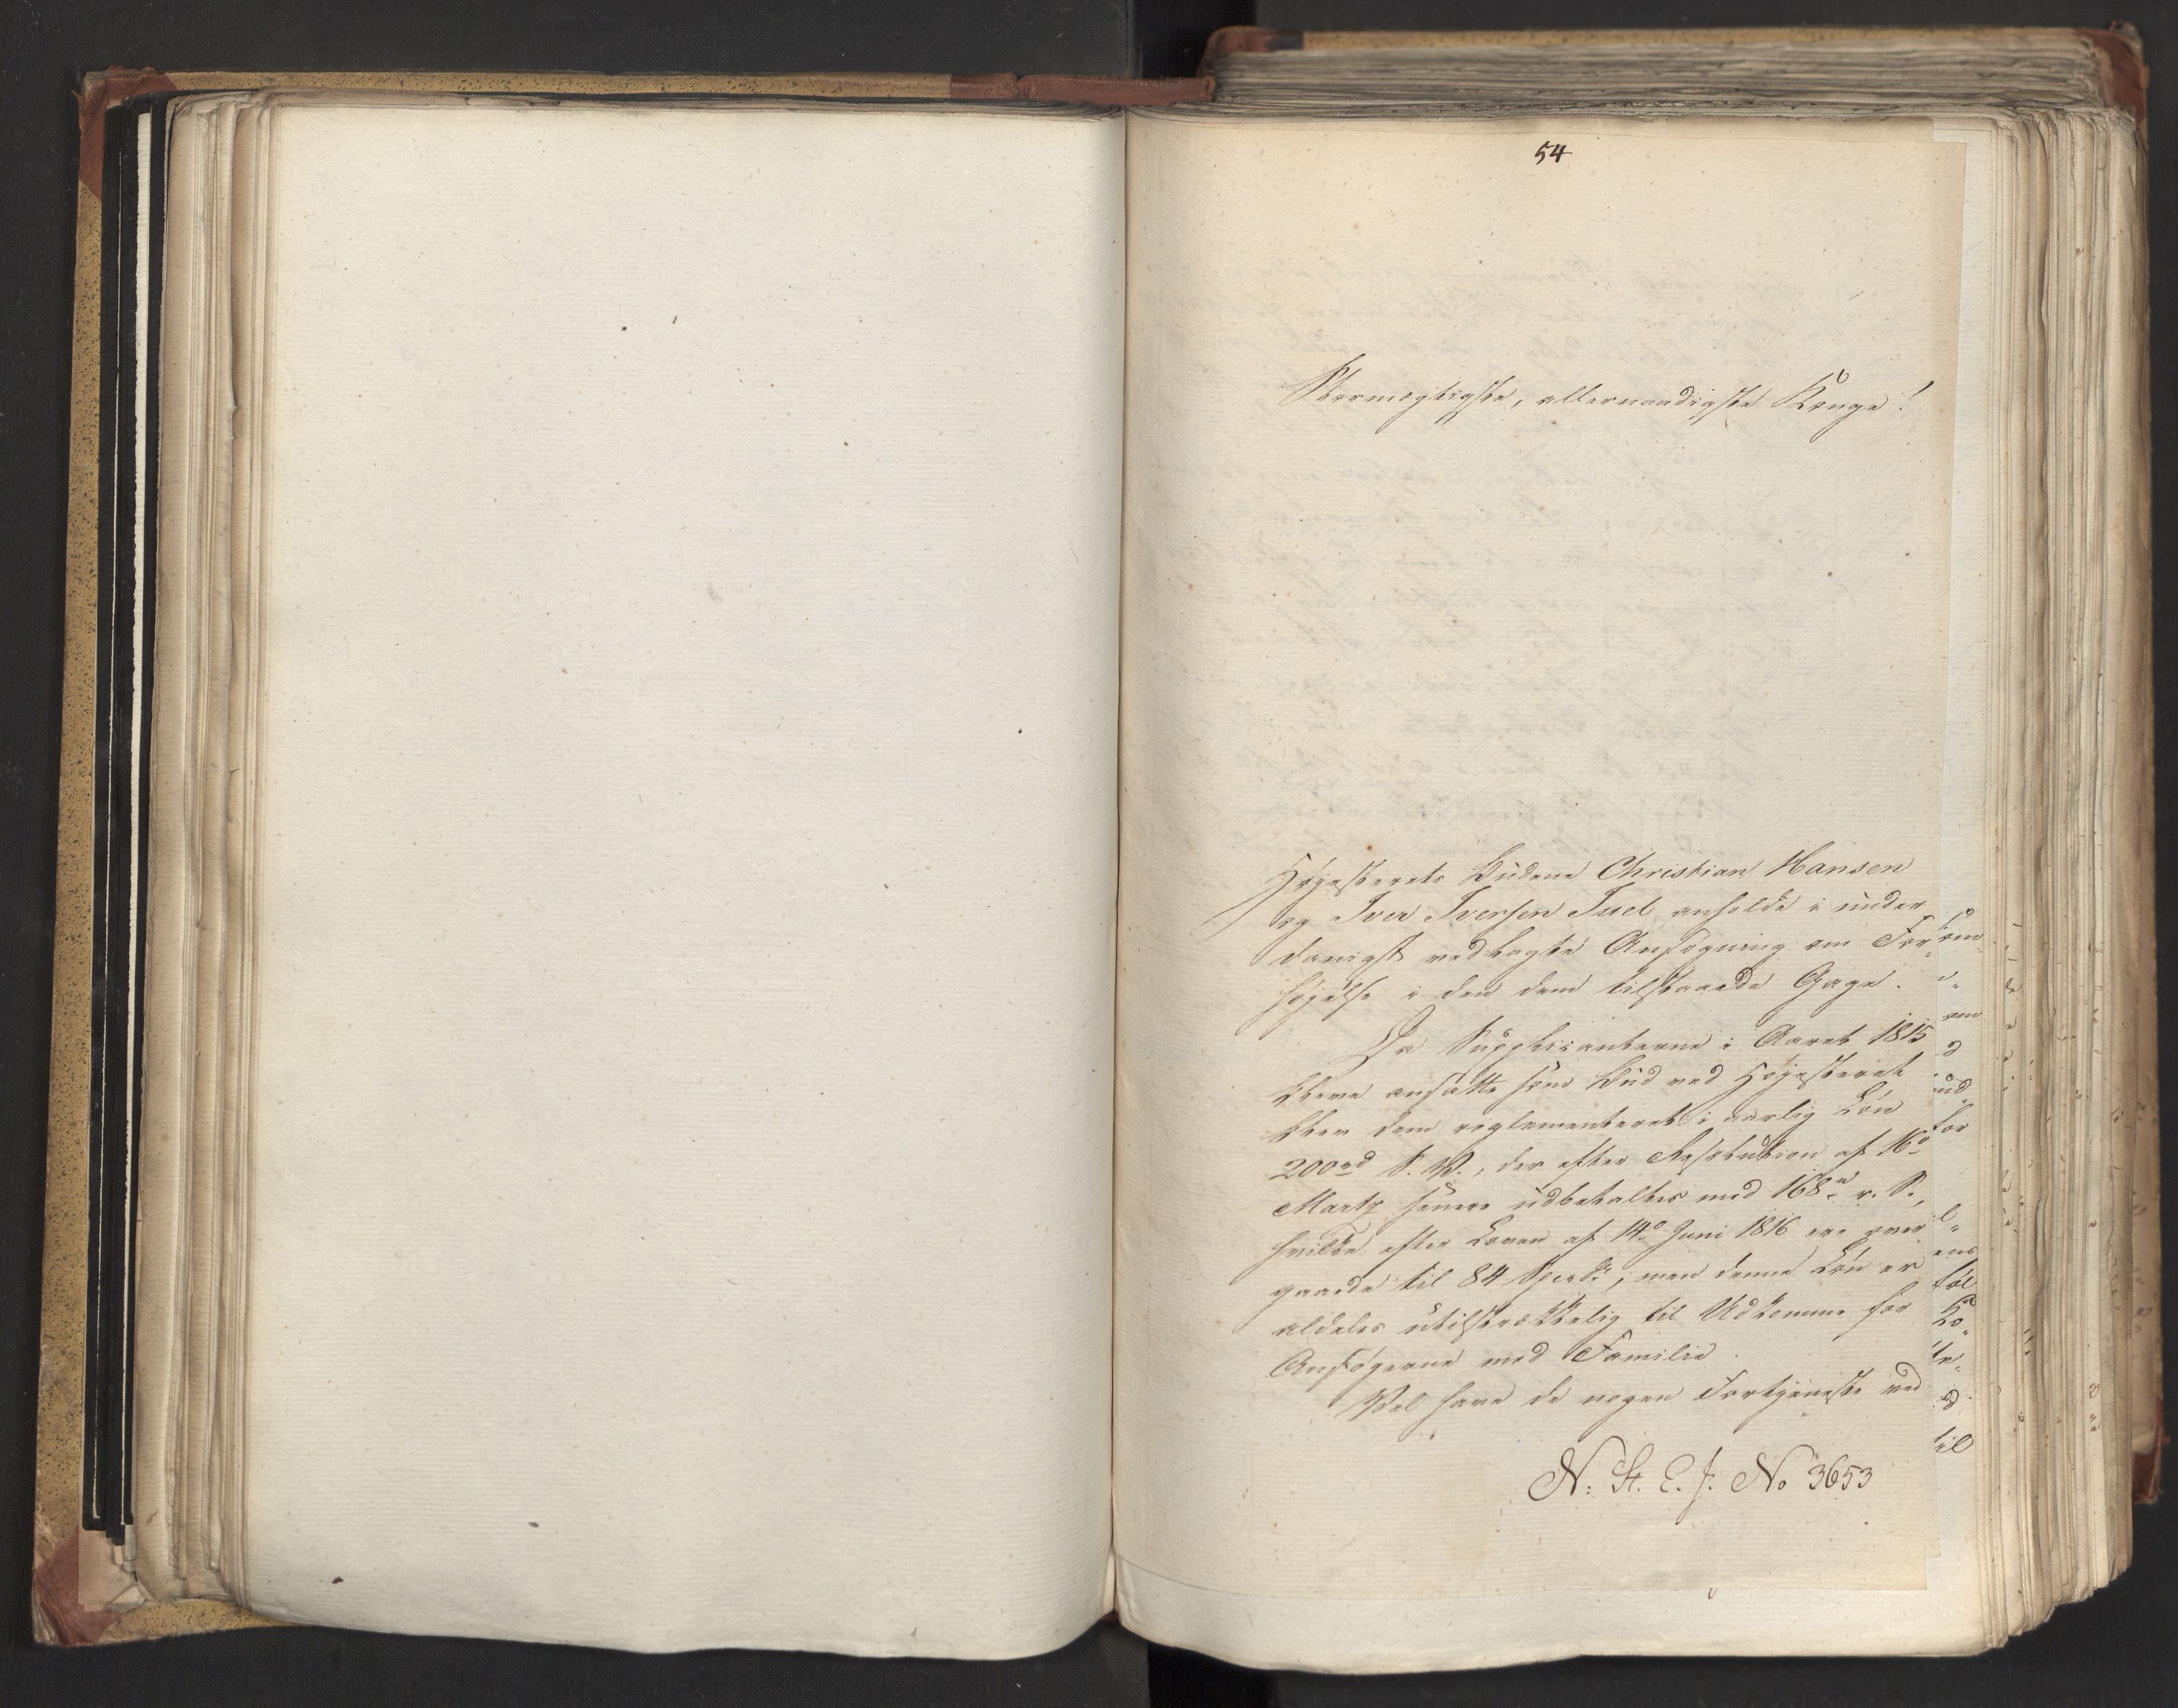 54
Stormægtigste, allernaadigste Konge!
Høyesterets Budene Christian Hansen
og Iver Iversen Juel anholde i under
danigst vedlagte Ansøgning om For=
højelse i den dem tilstaaede Gage.
Da Supplicanterne i Aaret 1815
bleve ansatte som Bud ved Højesteret
blev dem reglementeret i aarlig Løn
200 rd S. V., der efter Resolution af 16de
Martz senere udbetaltes med 168 r. S.,
hvilke efter Loven af 14de Juni 1816 ere over
gaaede til 84 Specd; men denne Løn er
aldeles utilstrækkelig til Udkomme for
Ansøgerne med Familie.
Vel have de nogen Fortjeneste ved
N. St. E. J. No 3653